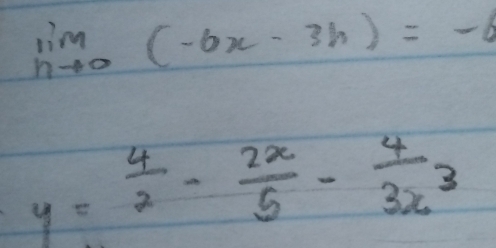 lim h→0 (-6x - 3h) = -6
y = 4/2 - 2x/5 - 4/3x³